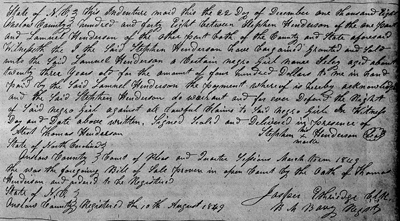 State of N.C. } This Indenture maid this the 22 day of December one thousand Eight
Onslow County } hundred and forty Eight between Stephen Henderson of the one part
and Samuel Henderson of the other part both of the County and State aforesaid
Witnesseth the I the Said Stephen Henderson have bargained granted and Sold
unto the Said Samuel Henderson a Certain negro Girl names aged about
twenty three years old for the amount of four hundred Dollars to me in hand
paid by the Said Samuel Henderson the payment whereof is hereby acknowledge
and the Said Stephen Henderson do warrant and for ever Defend the Right
of Said negro against all lawful Claims to Said negro Girl In Witness
Day and Date above written Signed Seald and Delivered in presence of
Attest Thomas Henderson Stephen his Henderson
mark
State of North Carolina
Onslow County } Court of Pleas and Quarter Sessions March Term 1849
Was the foregoing Bill of Sale proven in open Court by the Oath of Thomas
Henderson and ordered to be Registered
Jasper Etheridge Clk
State of N.C.
Onslow County } Registered the 10th August 1849